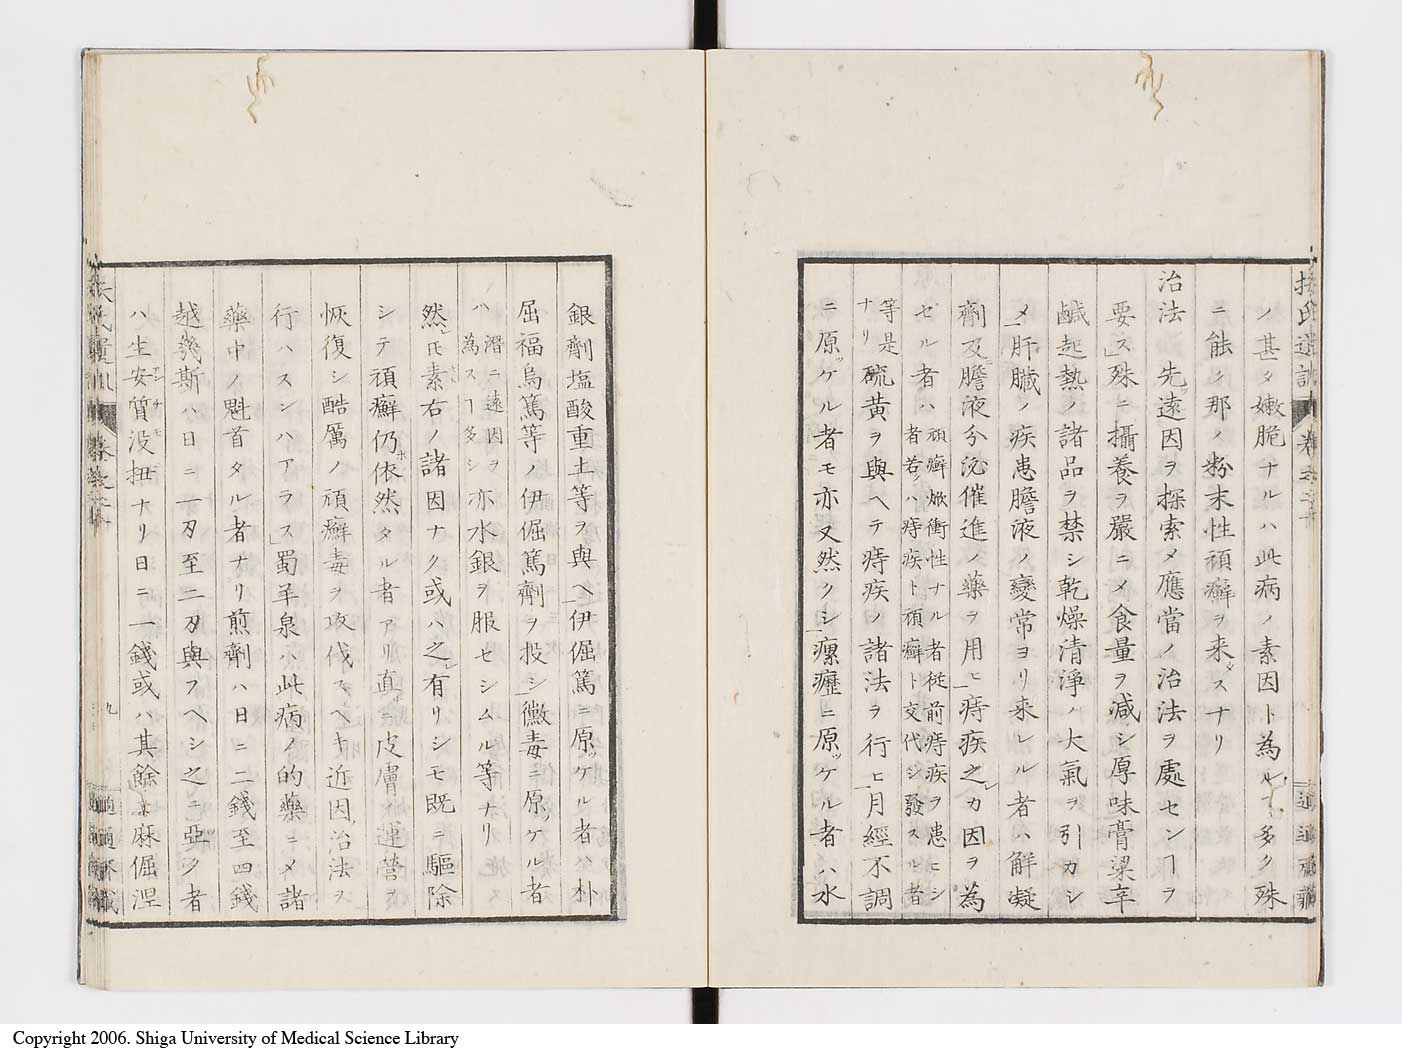 ノ甚タ嫩脆ナルハ此病ノ素因ト為ル多ク殊
ニ能ク那ノ粉末性頑癬ヲ来スナリ
治法 先遠因ヲ探索メ應當ノ治法ヲ處センヿヲ
要ス殊ニ攝養ヲ嚴ニメ食量ヲ減シ厚味膏粱辛
鹹起熱ノ諸品ヲ禁シ乾燥清淨ノ大氣ヲ引カシ
メ肝臓ノ疾患膽液ノ變常ヨリ来レル者ハ解凝
劑及膽液分泌催進ノ藥ヲ用ヒ痔疾之カ因ヲ為
セル者ハ頑癬焮衝性ナル者従前痔疾ヲ患ヒシ
者若クハ痔疾ト頑癬ト交代シ發スル者
等是
ナリ硫黄ヲ與ヘテ痔疾ノ諸法ヲ行ヒ月經不調
ニ原ツケル者モ亦又然クシ瘰癧ニ原ツケル者ハ水
銀劑塩酸重土等ヲ與ヘ伊倔篤ニ原ツケル者ハ朴
屈福烏篤等ノ伊倔篤劑ヲ投シ黴毒ニ原ツケル者
ハ潜ニ遠因ヲ
為スヿ多シ亦水銀ヲ服セシムル等ナリ
然トモ素右ノ諸因ナク或ハ之有リシモ既ニ驅除
シテ頑癬仍依然タル者アリ直ニ皮膚ノ運營ヲ
恢復シ酷厲ノ頑癬毒ヲ攻伐スヘキ近因治法ヲ
行ハスンハアラス蜀羊泉ハ此病ノ的藥ニメ諸
藥中ノ魁首タル者ナリ煎劑ハ日ニ二錢至四錢
越幾斯ハ日ニ一刄至二刄與フヘシ之ニ亞ク者
ハ生安質没扭ナリ日ニ一錢或ハ其餘ホ麻倔涅